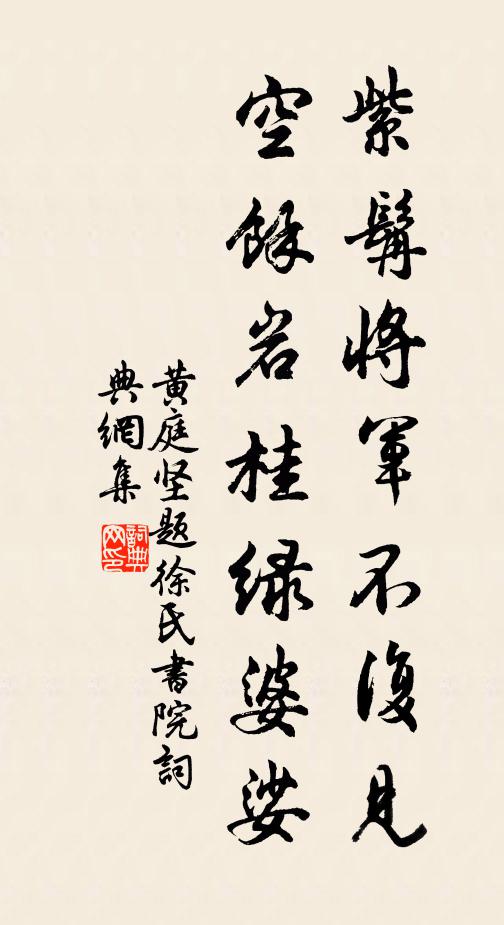 紫髯將軍不復見
空餘岩桂綠婆娑
黄庭坚题徐氏書院詞
典網集
詞典網印